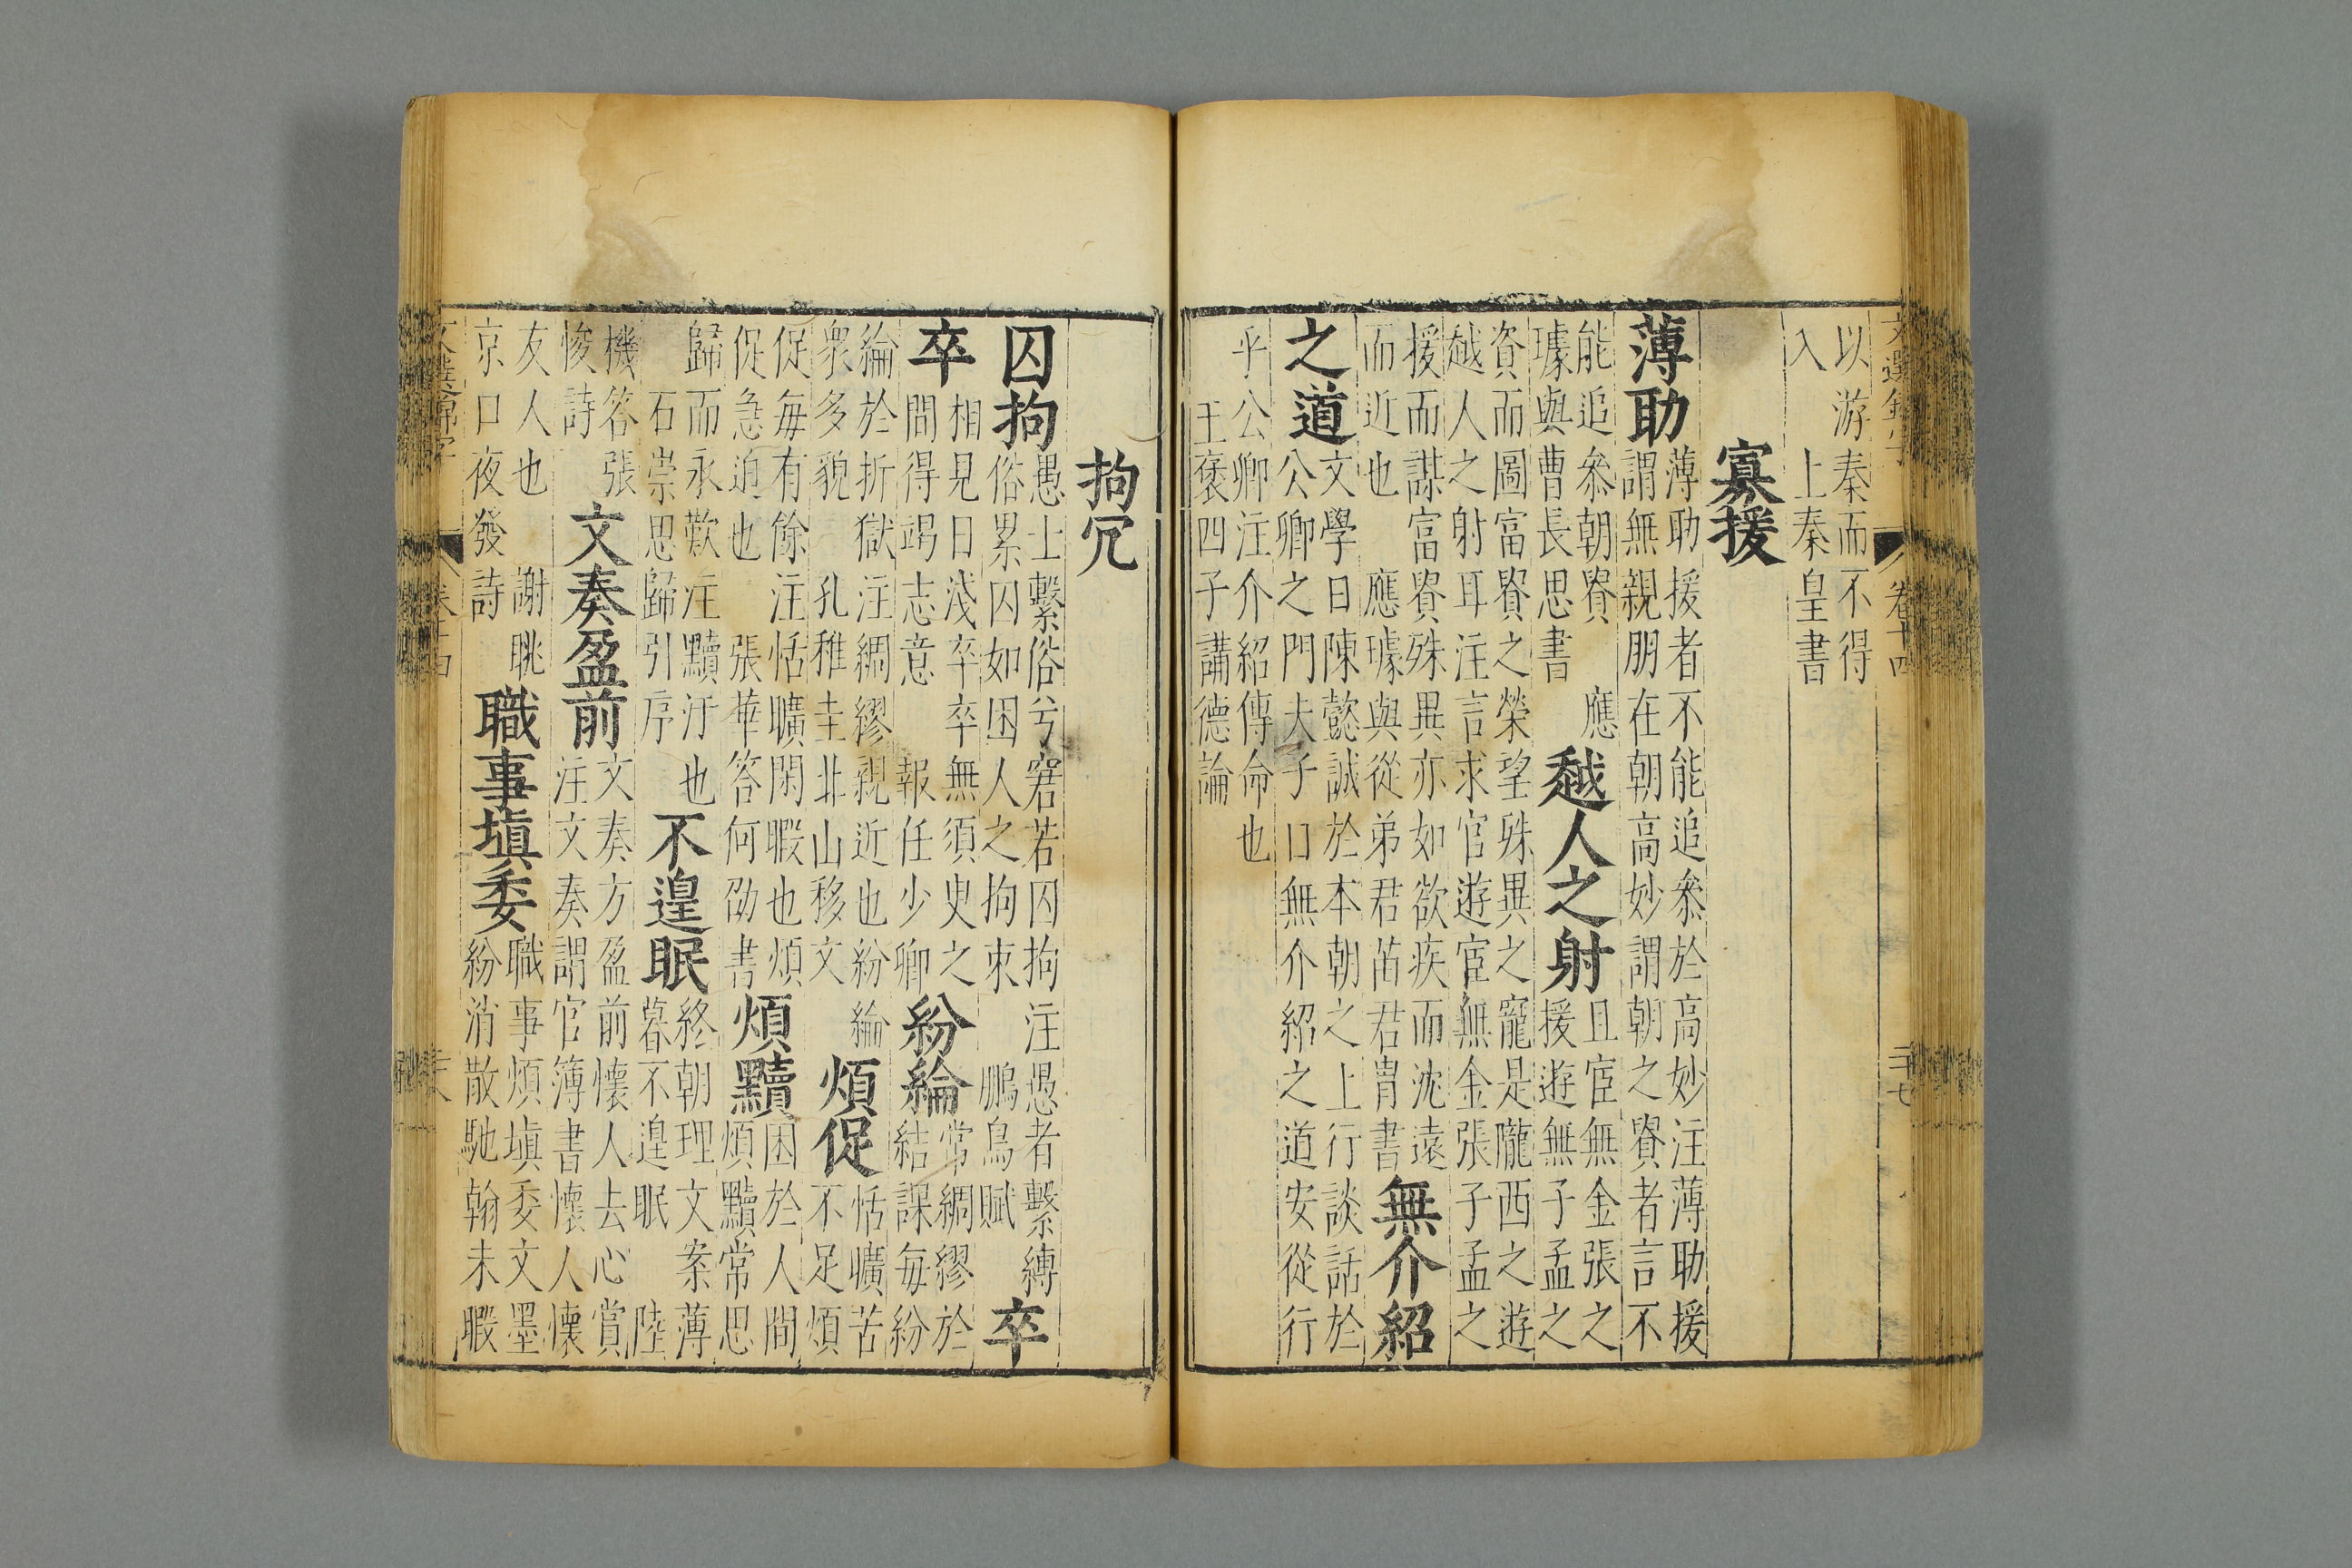 文選錦字 卷十四 三十七
以游秦而不得
入 上秦皇書
寡援
薄助 薄助援者不能追叅於高妙注薄助援
謂無親朋在朝高妙謂朝之賢者言不
能追叅朝賢 應
璩與曹長思書 越人之射 且宦無金張之
援遊無子孟之
資而圖富貴之榮望殊異之寵是隴西之遊
越人之射耳注言求官遊宦無金張子孟之
援而謀富貴殊異亦如欲疾而沈遠
而近也 應璩與從弟君苗君胄書 無介紹
之道 文學曰陳懿誠於本朝之上行談話於
公卿之門夫子曰無介紹之道安從行
乎公卿注介紹傳命也
王褒四子講德論
拘冗
囚拘 愚士繫俗兮窘若囚拘注愚者繫縛
俗累囚如困人之拘束 鵩鳥賦 卒
卒 相見日淺卒卒無須臾之
間得竭志意 報任少卿 紛綸 常綢繆於
結課每紛
綸於折獄注綢繆親近也紛綸
衆多貌 孔稚圭北山移文 煩促 恬曠苦
不足煩
促每有餘注恬曠閑暇也煩
促急迫也 張華答何劭書 煩黷 困於人間
煩黷常思
歸而永歎注黷汙也
石崇思歸引序 不遑眠 終朝理文案薄
暮不遑眠 陸
機答張
悛詩 文奏盈前 文奏方盈前懷人去心賞
注文奏謂官簿書懷人懷
友人也 謝眺
京口夜發詩 職事塡委 職事煩塡委文墨
紛消散馳翰未暇